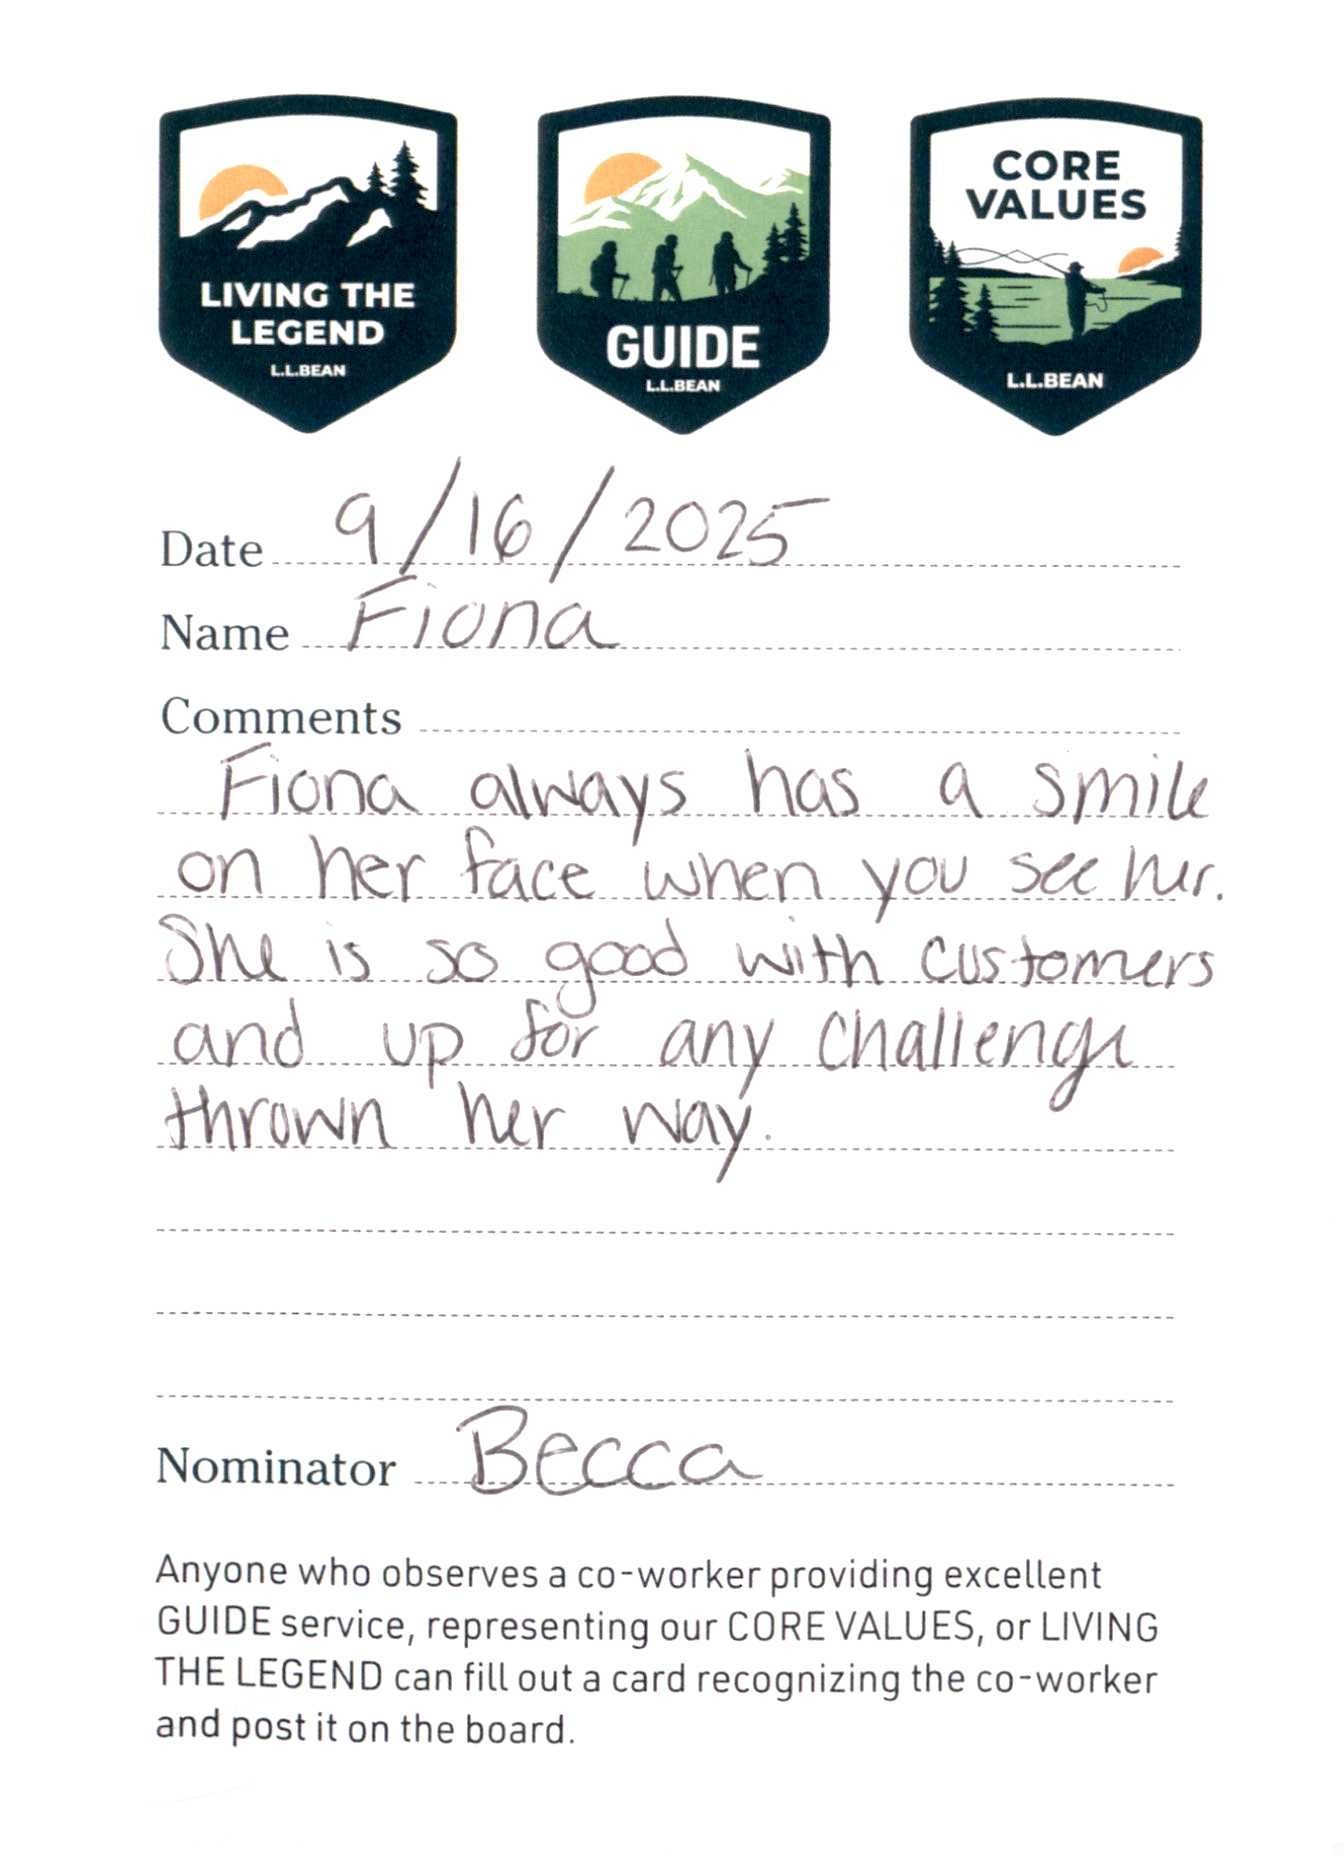 LIVING THE
LEGEND
L.L.BEAN
GUIDE
L.L.BEAN
CORE
VALUES
L.L.BEAN
Date 9/16/2025
Name Fiona
Comments
Fiona always has a smile
on her face when you see her.
She is so good with customers
and up for any challenge
thrown her way.
Nominator Becca
Anyone who observes a co-worker providing excellent
GUIDE service, representing our CORE VALUES, or LIVING
THE LEGEND can fill out a card recognizing the co-worker
and post it on the board.